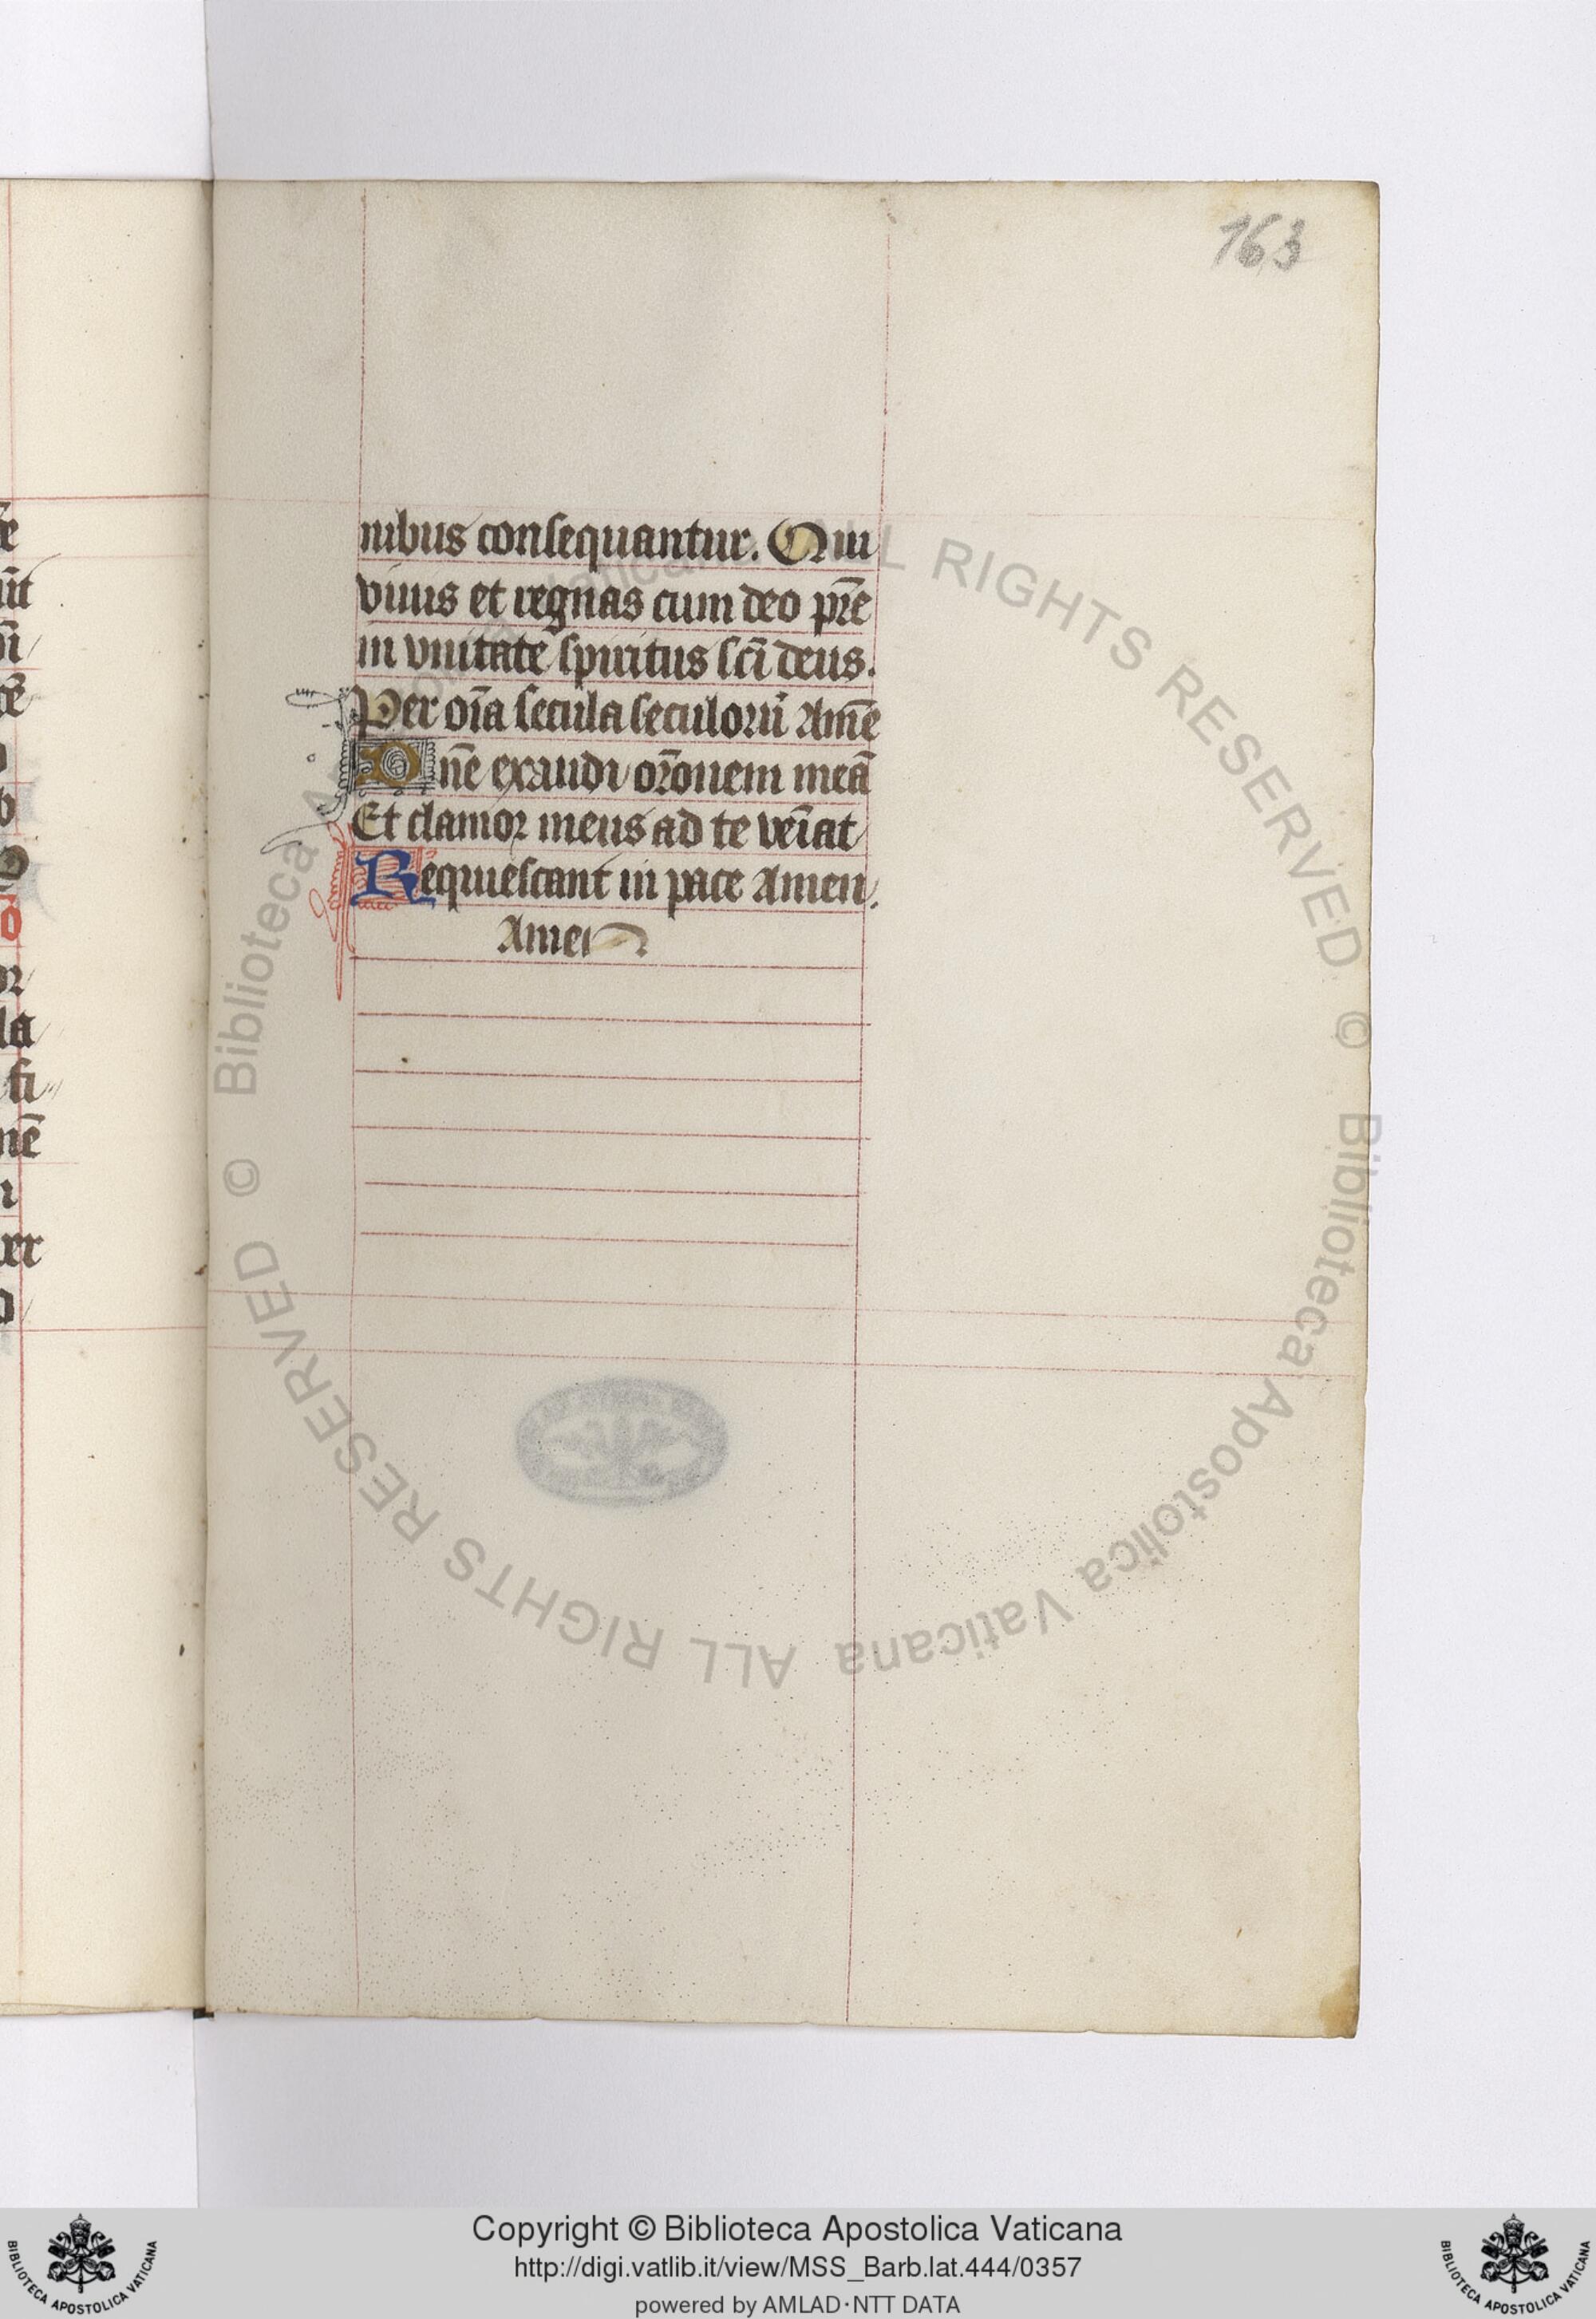 163
nibus consequantur. Qui
viuis et regnas cum deo pr̄e
in vnitate spiritus sc̄i deus.
Per oīa secula seculorū Amē
Dn̄e exaudi or̄onem meā
Et clamor meus ad te venīat
Requiescant in pace Amen.
Amen
© Biblioteca Apostolica Vaticana ALL RIGHTS RESERVED
© Biblioteca Apostolica Vaticana ALL RIGHTS RESERVED
Copyright © Biblioteca Apostolica Vaticana
http://digi.vatlib.it/view/MSS_Barb.lat.444/0357
powered by AMLAD·NTT DATA
BIBLIOTECA APOSTOLICA VATICANA
BIBLIOTECA APOSTOLICA VATICANA